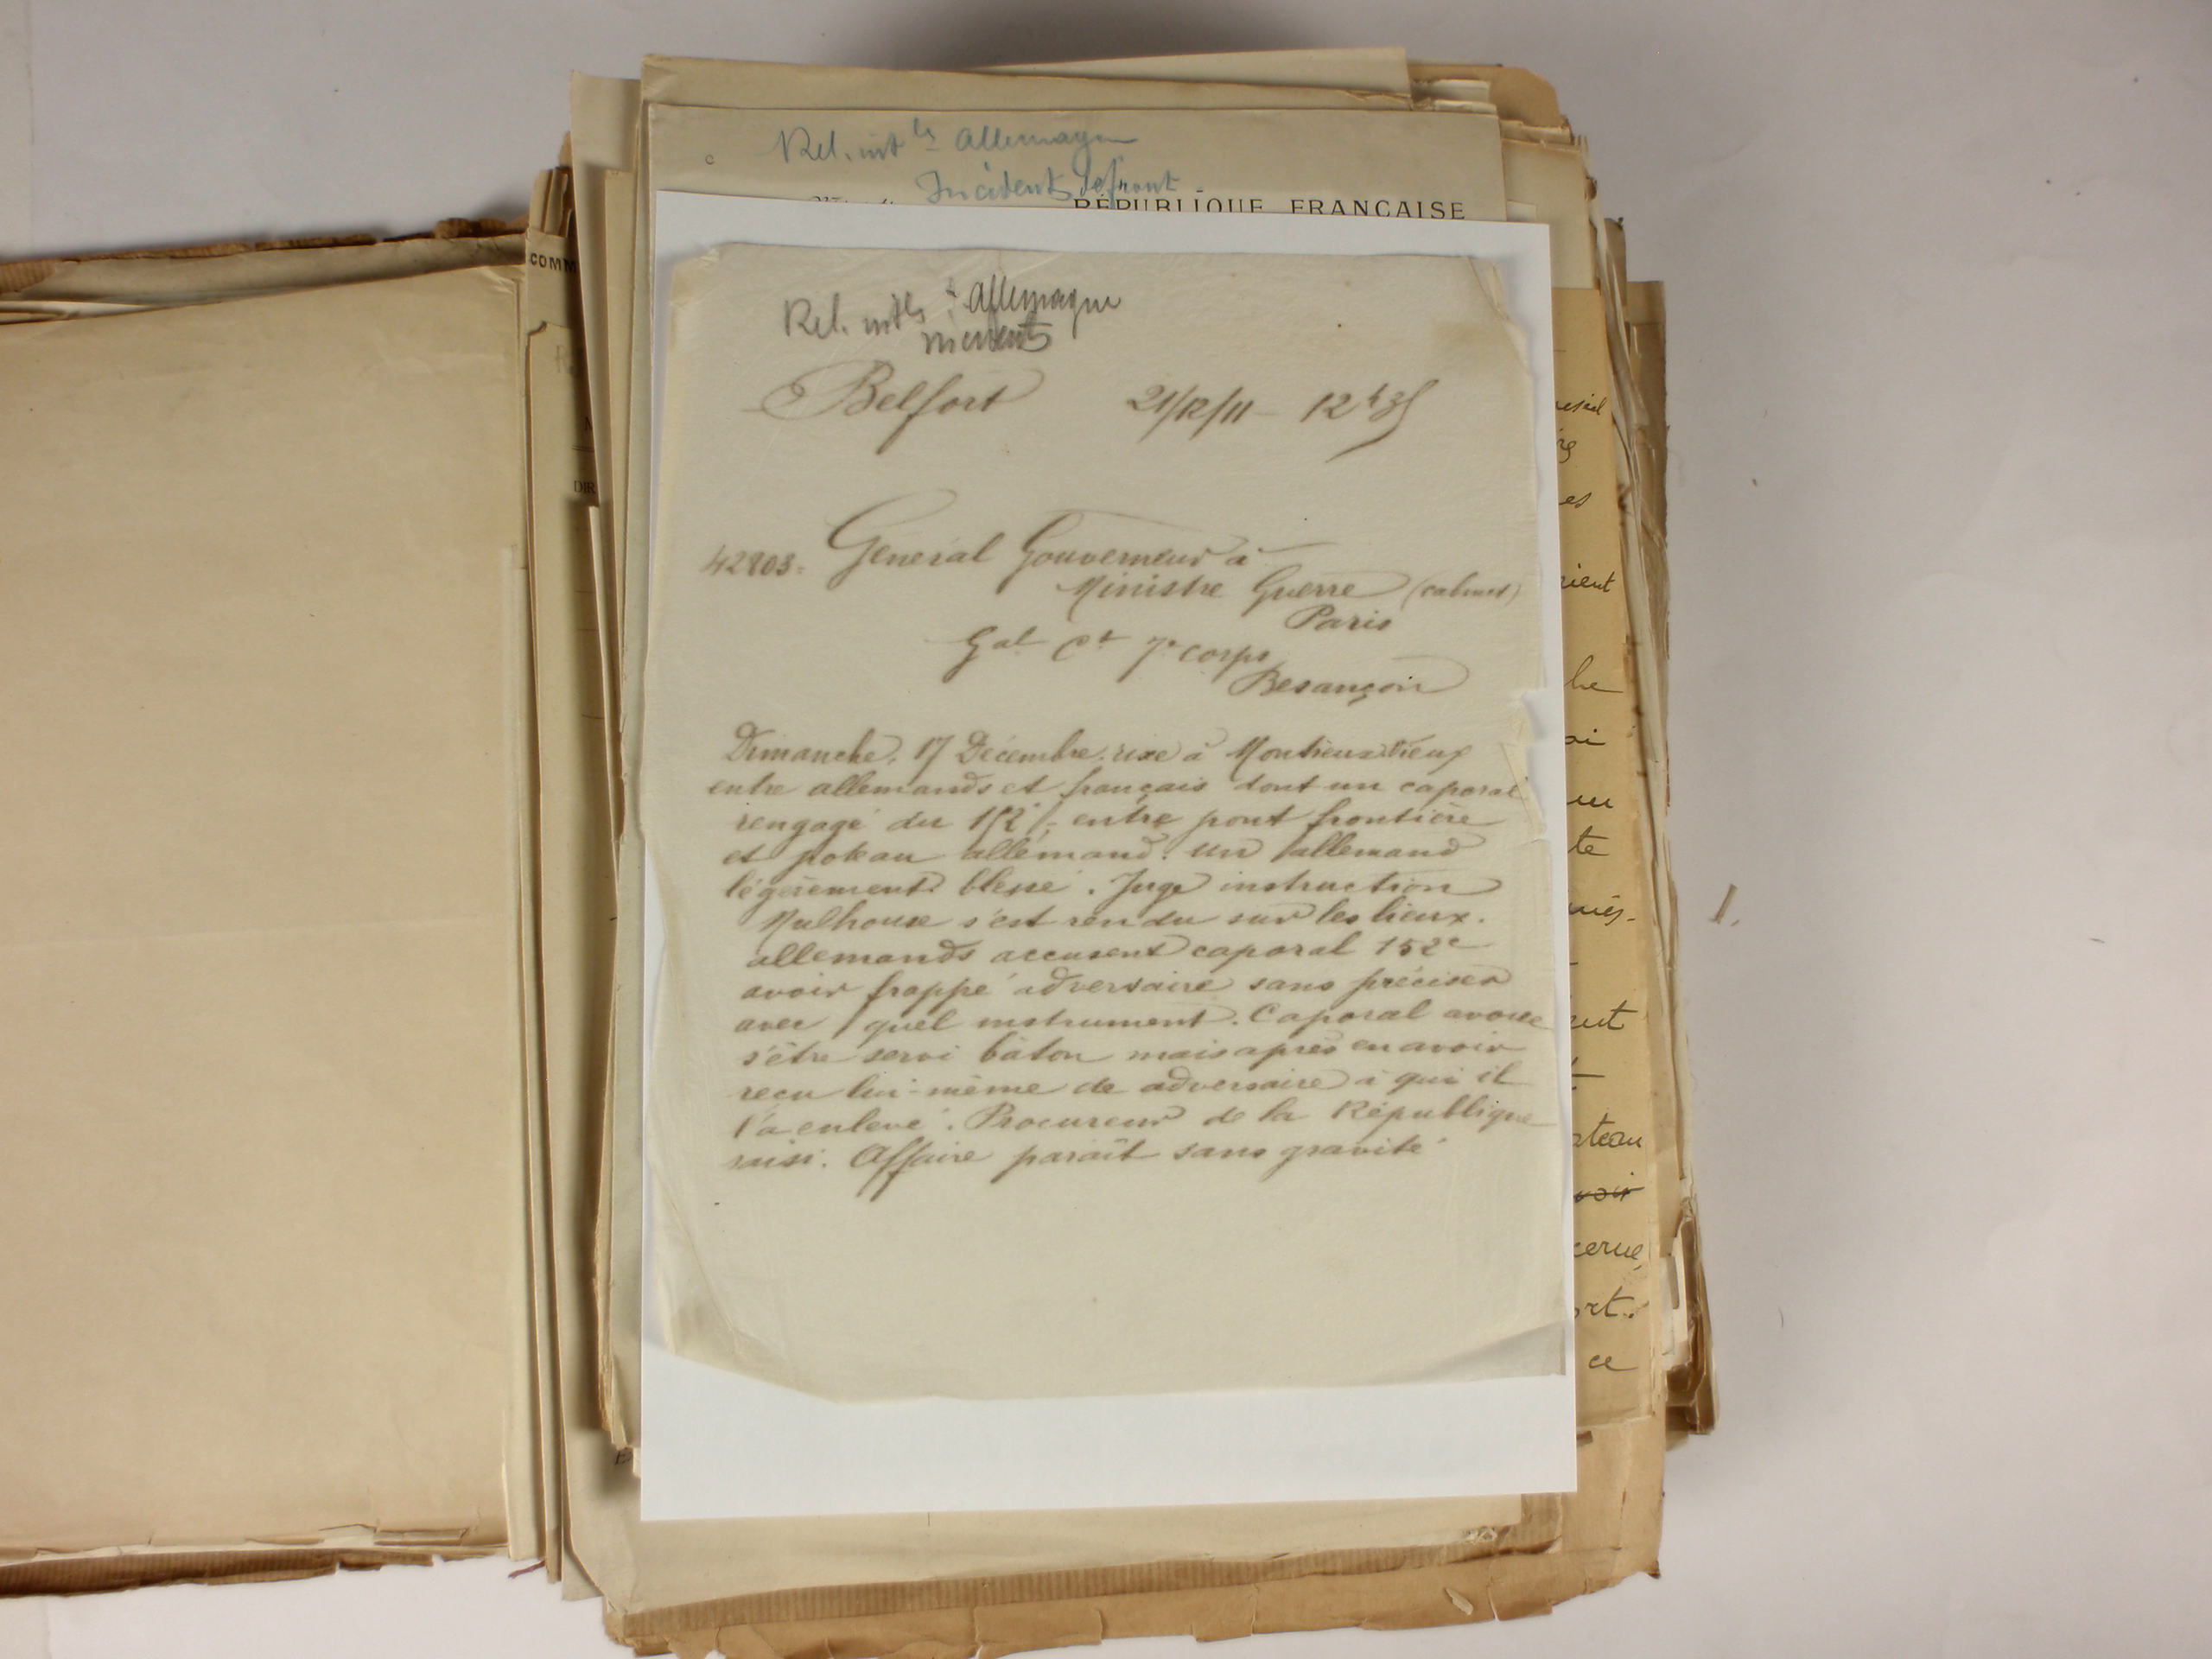 Rel. int les Allemagne
Incident de front.
RÉPUBLIQUE FRANÇAISE
COMM
DIR
Rel. intles Allemagne
incident
Belfort 21/12/11 - 12h35
42803. Général Gouverneur à
Ministre Guerre (cabinet)
Paris
Gal Ct 7e corps
Besançon
Dimanche, 17 Décembre. rixe à Montreux Vieux
entre allemands et français dont un caporal
rengagé du 152e, entre pont frontière
et poteau allemand. un allemand
légèrement blessé. Juge instruction
Mulhouse s'est rendu sur les lieux.
allemands accusent caporal 152e
avoir frappé adversaire sans préciser
avec quel instrument. Caporal avoue
s'être servi bâton mais après en avoir
reçu lui-même de adversaire à qui il
l'a enlevé. Procureur de la République
saisi. Affaire paraît sans gravité
es
rient
he
oi
te
ateau
voir
cerne,
ort.
ce